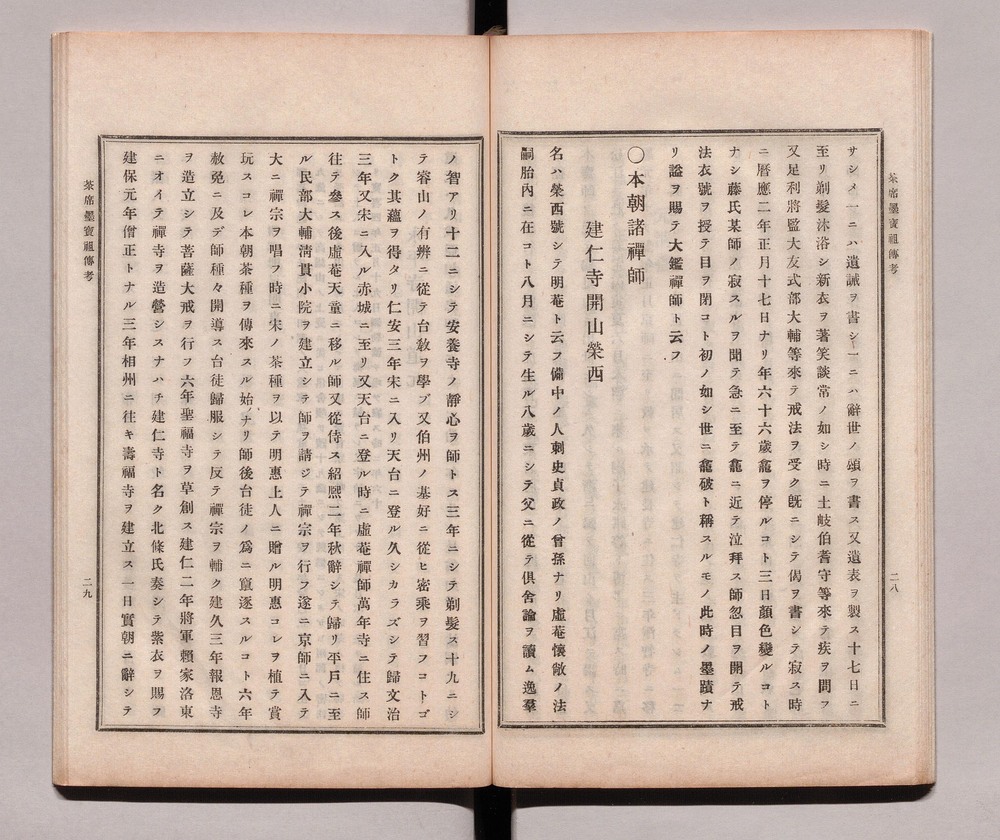 茶席墨寶祖傳考
サシメ一ニハ遺誡ヲ書シ一ニハ辭世ノ頌ヲ書ス又遺表ヲ製ス十七日ニ
至リ剃髮沐浴シ新衣ヲ著笑談常ノ如シ時ニ土岐伯耆守等來テ疾ヲ問フ
又足利將監大友式部大輔等來テ戒法ヲ受ク既ニシテ偈ヲ書シテ寂ス時
ニ曆應二年正月十七日ナリ年六十六歲龕ヲ停ルコト三日顏色變ルコト
ナシ藤氏某師ノ寂スルヲ聞テ急ニ至テ龕ニ近テ泣拜ス師忽目ヲ開テ戒
法衣號ヲ授テ目ヲ閉コト初ノ如シ世ニ龕破ト稱スルモノ此時ノ墨蹟ナ
リ謚ヲ賜テ大鑑禪師ト云フ
〇本朝諸禪師
建仁寺開山榮西
名ハ榮西號シテ明菴ト云フ備中ノ人刺史貞政ノ曾孫ナリ虛菴懷敞ノ法
嗣胎內ニ在コト八月ニシテ生ル八歲ニシテ父ニ從テ俱舍論ヲ讀ム逸羣
二八
ノ智アリ十二ニシテ安養寺ノ靜心ヲ師トス三年ニシテ剃髮ス十九ニシ
テ睿山ノ有辨ニ從テ台敎ヲ學ブ又伯州ノ基好ニ從ヒ密乘ヲ習フコトゴ
トク其蘊ヲ得タリ仁安三年宋ニ入リ天台ニ登ル久シカラズシテ歸文治
三年又宋ニ入ル赤城ニ至リ又天台ニ登ル時ニ虛菴禪師萬年寺ニ住ス師
往テ參ス後虛菴天童ニ移ル師又從侍ス紹熈二年秋辭シテ歸リ平戶ニ至
ル民部大輔淸貫小院ヲ建立シテ師ヲ請ジテ禪宗ヲ行フ遂ニ京師ニ入テ
大ニ禪宗ヲ唱フ時ニ宋ノ茶種ヲ以テ明惠上人ニ贈ル明惠コレヲ植テ賞
玩スコレ本朝茶種ヲ傳來スル始ナリ師後台徒ノ爲ニ竄逐スルコト六年
赦免ニ及デ師種々開導ス台徒歸服シテ反テ禪宗ヲ輔ク建久三年報恩寺
ヲ造立シテ菩薩大戒ヲ行フ六年聖福寺ヲ草創ス建仁二年將軍賴家洛東
ニオイテ禪寺ヲ造營シスナハチ建仁寺ト名ク北條氏奏シテ紫衣ヲ賜フ
建保元年僧正トナル三年相州ニ往キ濤福寺ヲ建立ス一日實朝ニ辭シテ
茶席墨寶祖傳考
二九